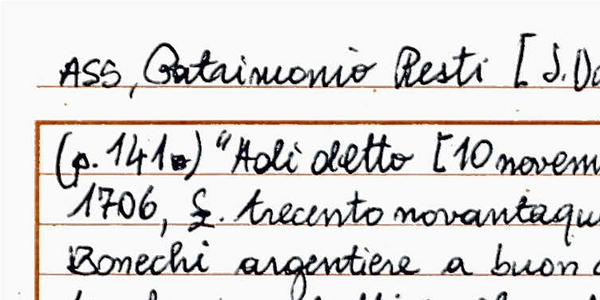 ASS, Patrimonio Resti [ S. Da
(p. 141v) "Adì detto [10 novem
1706, £. trecento novantaqu
Bonechi argentiere a buon